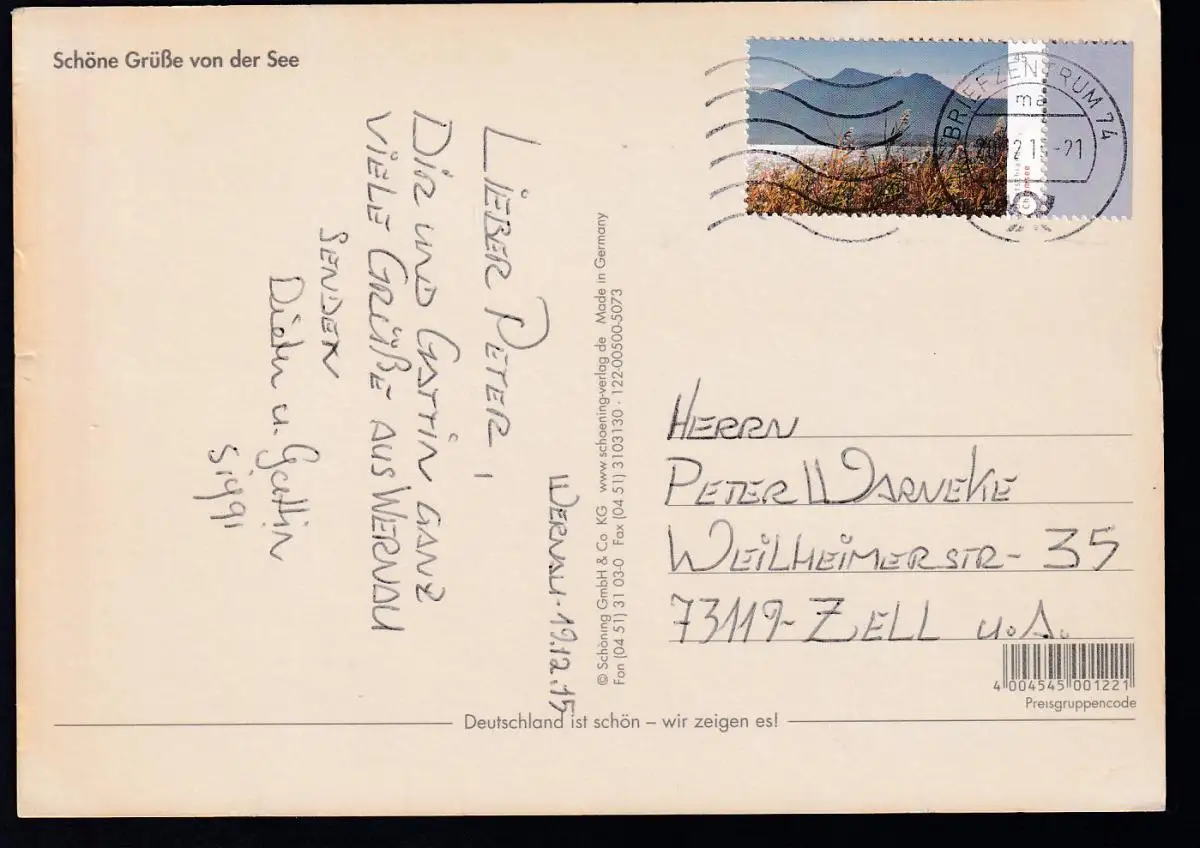 Schöne Grüße von der See
BRIEFZENTRUM 74
ma
-21
45
Chiemsee
WERNAU. 19.12.15
LIEBER PETER,
DIR UND GATTIN GANZ
VIELE GRÜßE AUS WERNAU
SENDEN
Dieter u. Gattin
Siggi
© Schöning GmbH & Co. KG www.schoening-verlag.de Made in Germany
Fon (04 51) 31 03-0 Fax (04 51) 3103130 · 122-00500-5073
HERRN
PETER WARNEKE
WEILHEIMERSTR- 35
73119- ZELL u.A.
4 004545 001221
Preisgruppencode
Deutschland ist schön – wir zeigen es!